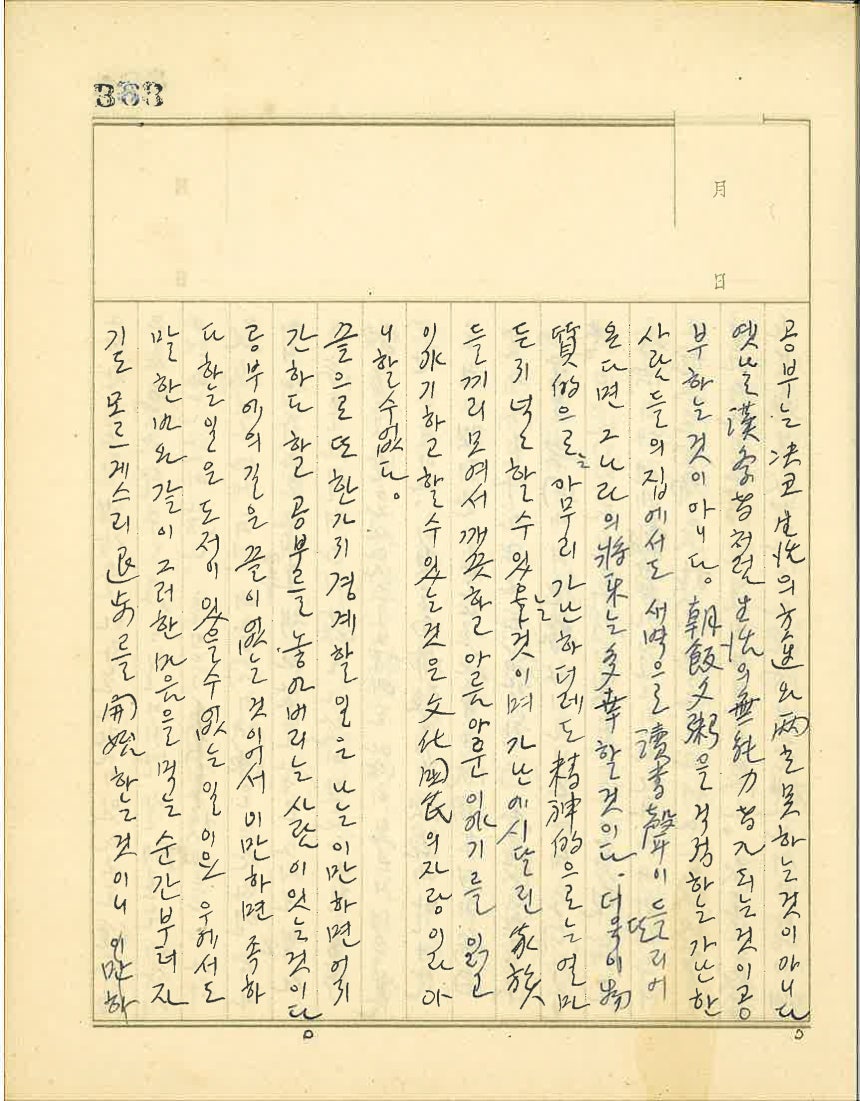 363
月
日
공부는 決코 生活의 方途와 両立 못하는것이 아니다
옛날 漢学者처럼 生活의 無能力者가 되는것이 공
부하는 것이 아니다. 朝飯夕粥을 걱정하는 가난한
사람들의 집에서도 새벽으로 讀書聲이 들려
온다면 그나라의 將来는 多幸할것이다. 더욱이 物
質的으로는 아무리 가난하더레도 精神的으로는 얼마
든지 넉넉할 수 있을것이며 가난에 시달린 家族
들끼리 모여서 깨끗하고 아름다운 이야기를 읽고
이야기하고 할수 있는것은 文化国民의 자랑일 아
니할수 없다.
끝으로 또한가지 경계할 일은 나는 이만하면 어지
간하다 하고 공부를 놓아버리는 사람이 있는것이다
공부에의 길은 끝이 없는것이어서 이만하면 족하
다 하는 일은 도저이 있을수 없는 일이요 우에서도
말한바와 같이 그러한 마음을 먹는 순간부터 자
기도 모르게스리 退步를 開始하는것이니 이만하